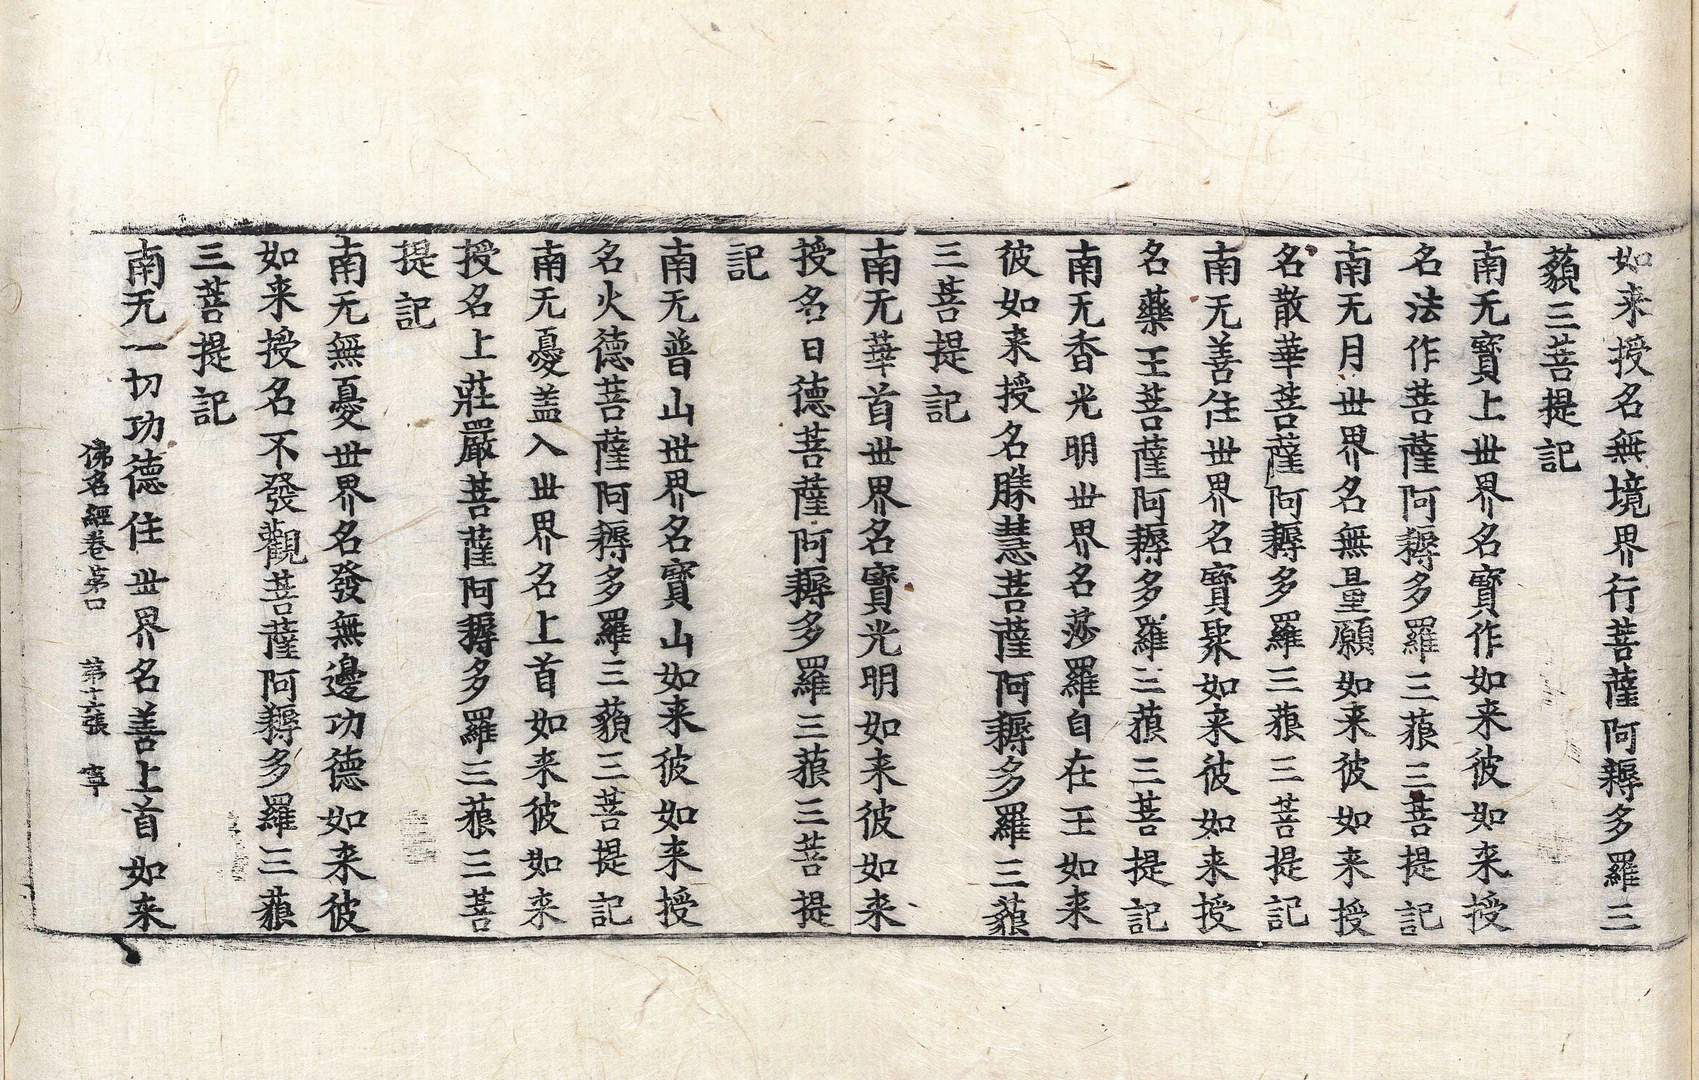 如来授名無境界行菩薩阿耨多羅三
藐三菩提記
南无寳上丗界名寳作如来彼如来授
名法作菩薩阿耨多羅三藐三菩提記
南无月丗界名無量願如来彼如来授
名散華菩薩阿耨多羅三藐三菩提記
南无善住丗界名寳聚如来彼如来授
名藥王菩薩阿耨多羅三藐三菩提記
南无香光明丗界名莎羅自在王如来
彼如来授名勝慧菩薩阿耨多羅三藐
三菩提記
南无華首丗界名寳光明如来彼如来
授名日德菩薩阿耨多羅三藐三菩提
記
南无普山丗界名寳山如来彼如来授
名火德菩薩阿耨多羅三藐三菩提記
南无憂盖入丗界名上首如来彼如来
授名上莊嚴菩薩阿耨多羅三藐三菩
提記
南无無憂丗界名發無邊功德如来彼
如来授名不發觀菩薩阿耨多羅三藐
三菩提記
南无一切功德住丗界名善上首如来
佛名經卷第 第十六張 寧